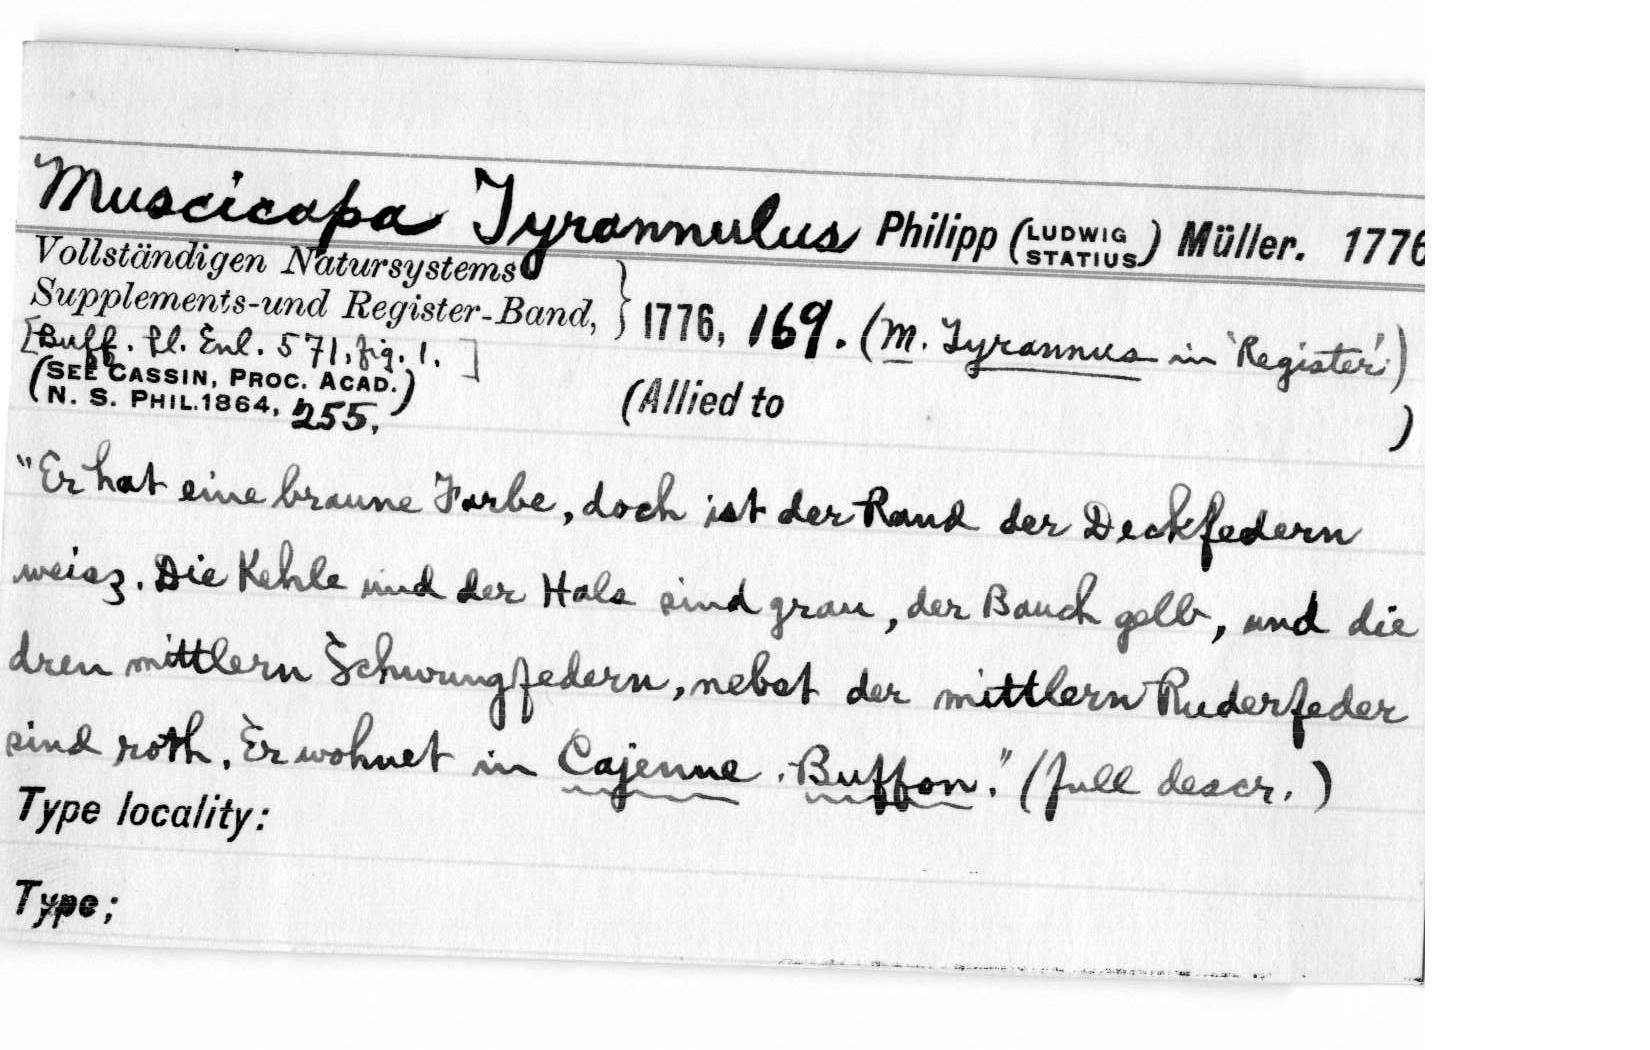 Muscicapa Tyrannulus Philipp (LUDWIG STATIUS) Müller. 1776
Vollständigen Natursystems
Supplements-und Register-Band, } 1776, 169. (M. Tyrannus in 'Register'.)
[Buff. pl. Enl. 571, fig. 1.]
(SEE CASSIN, PROC. ACAD.
N. S. PHIL. 1864, 255.) (Allied to )
"Er hat eine braune Farbe, doch ist der Rand der Deckfedern
weisz. Die Kehle und der Hals sind grau, der Bauch gelb, und die
dren mittlern Schwungfedern, nebst der mittlern Ruderfeder
sind roth. Er wohnet in Cajenne. Buffon." (full descr.)
Type locality:
Type;